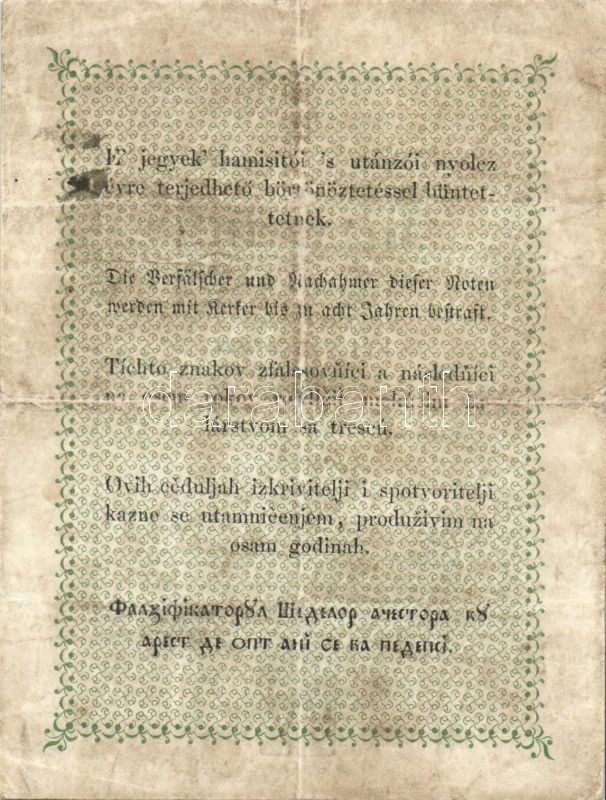 E' jegyek' hamisitói 's utánzói nyolcz
évre terjedhető börtönöztetéssel büntet-
tetnek.
Die Verfälscher und Nachahmer dieser Noten
werden mit Kerker bis zu acht Jahren bestraft.
Tíchto znakov zfalšovňíci a následňíci
na osem rokov
lárstvom sa trescú.
Ovih céduljah izkrivitelji i spotvoritelji
kazne se utamničenjem, produživim na
osam godinah.
Фалзіфікаторꙋл Шіделор ачестора кꙋ
арест де опт ані се ва педепсі.
darabanth